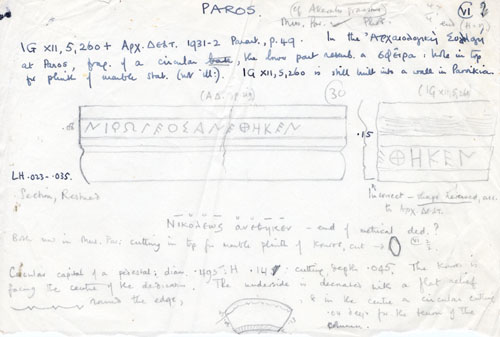 PAROS.
(cf Akerato
Mus. Par. Phot.
VI
IG XII, 5, 260 + Αρχ. Δελτ. 1931-2 Parart., p. 49. In the Ἀρχαιολογικὴ Συλλογὴ
at Paros, frag. of a circular base, the lower part resemb. a σφεῖρα: hole in top
for plinth of marble stat. (not ill:). IG XII, 5, 260 is still built into a wall in Paroikia.
(ΑΔ. p. 49)
30
(IG XII, 5, 260)
ΕΟΣΑΝΕΘΗΚΕΝ
.15
ΕΘΗΚΕΝ
LH .023-.035.
Section, Restored
Incorrect - shape reversed, acc.
to Αρχ. Δελτ.
Νικόλεως ἀνέθηκεν - end of metrical ded.?
Both now in Mus. Par: cutting in top for marble plinth of Kouros, cut →
Circular capital of a pedestal; diam. .495: H .14: cutting depth .045. The Kouros is
facing the centre of the dedication. The underside is decorated with a flat relief
round the edge, & in the centre a circular cutting
deep for the tenon of the
column.